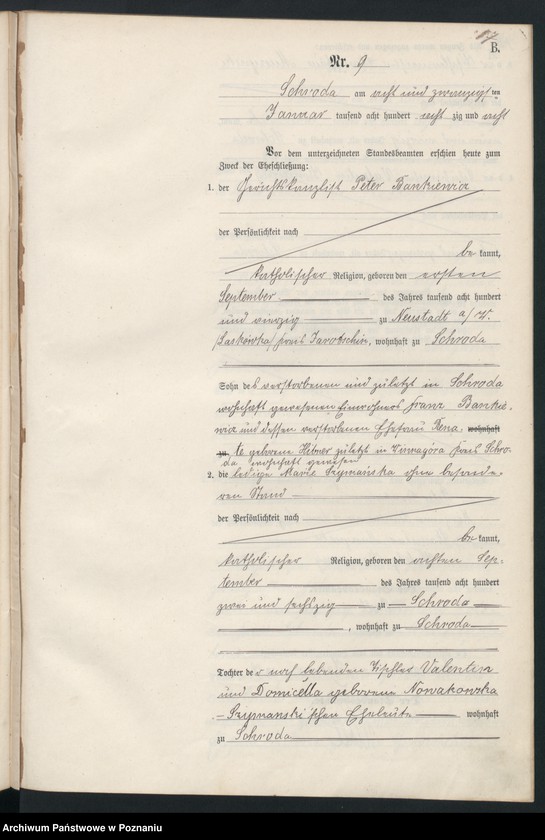 B.
Nr. 9
Schroda am acht und zwanzigsten
Januar tausend acht hundert acht zig und acht
Vor dem unterzeichneten Standesbeamten erschien heute zum
Zweck der Eheschließung:
1. der Gerichtskanzlist Peter Bankiewicz
der Persönlichkeit nach
be kannt,
katholischer Religion, geboren den ersten
September des Jahres tausend acht hundert
und vierzig zu Neustadt a/W.
Kreis Jarotschin, wohnhaft zu Schroda
Sohn des verstorbenen und zuletzt in Schroda
wohnhaft gewesenen Einwohners Franz Bankie-
wicz und dessen verstorbenen Ehefrau wohnhaft
zu geborene zuletzt in Winnagóra Kreis Schro-
da wohnhaft gewesen
2. die ledige Marie Szymańska ohne besonde-
ren Stand
der Persönlichkeit nach
be kannt,
katholischer Religion, geboren den achten Sep-
tember des Jahres tausend acht hundert
zwei und sechszig zu Schroda
, wohnhaft zu Schroda
Tochter der noch lebenden Tischler Valentin
und Domicella geborene Nowakowska
Szymanski'schen Eheleute wohnhaft
zu Schroda
Archiwum Państwowe w Poznaniu